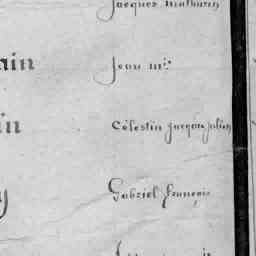 Jacques Mathurin
ain Jean M.
in Célestin Jacques Julien
y Gabriel François